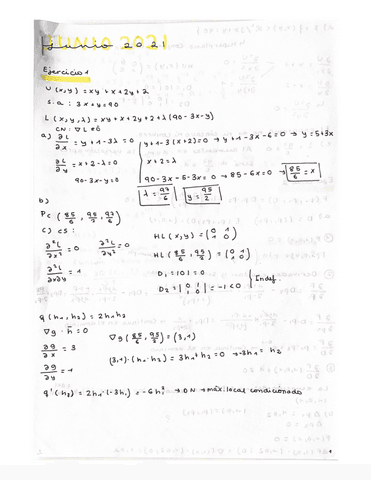 junio 2021
Ejercicio 1
U(x,y) = xy + x + 2y + 2
s.a: 3x + y = 90
L(x,y,λ) = xy + x + 2y + 2 + λ(90 - 3x - y)
CN: ∇L = 0̄
a) ∂L/∂x = y + 1 - 3λ = 0 | y + 1 - 3(x+2) = 0 → y + 1 - 3x - 6 = 0 → y = 5 + 3x
∂L/∂y = x + 2 - λ = 0 | x + 2 = λ
90 - 3x - y = 0 | 90 - 3x - 5 - 3x = 0 → 85 - 6x = 0 → 85/6 = x
λ = 97/6 | y = 95/2
b)
Pc (85/6, 95/2, 97/6)
c) CS:
∂²L/∂x² = 0 ∂²L/∂y² = 0 HL(x,y) = (0 1 1 0)
∂²L/∂x∂y = 1 HL(85/6, 95/2) = (0 1 1 0)
D1 = |0| = 0
D2 = |0 1 1 0| = -1 < 0 Indef.
q(h1, h2) = 2h1h2
∇g · h̄ = 0 ∇g(85/6, 95/2) = (3,1)
∂g/∂x = 3 (3,1)·(h1·h2) = 3h1 + h2 = 0 → -3h1 = h2
∂g/∂y = 1
q'(h2) = 2h1·(-3h1) = -6h1² → DN → máx local condicionado